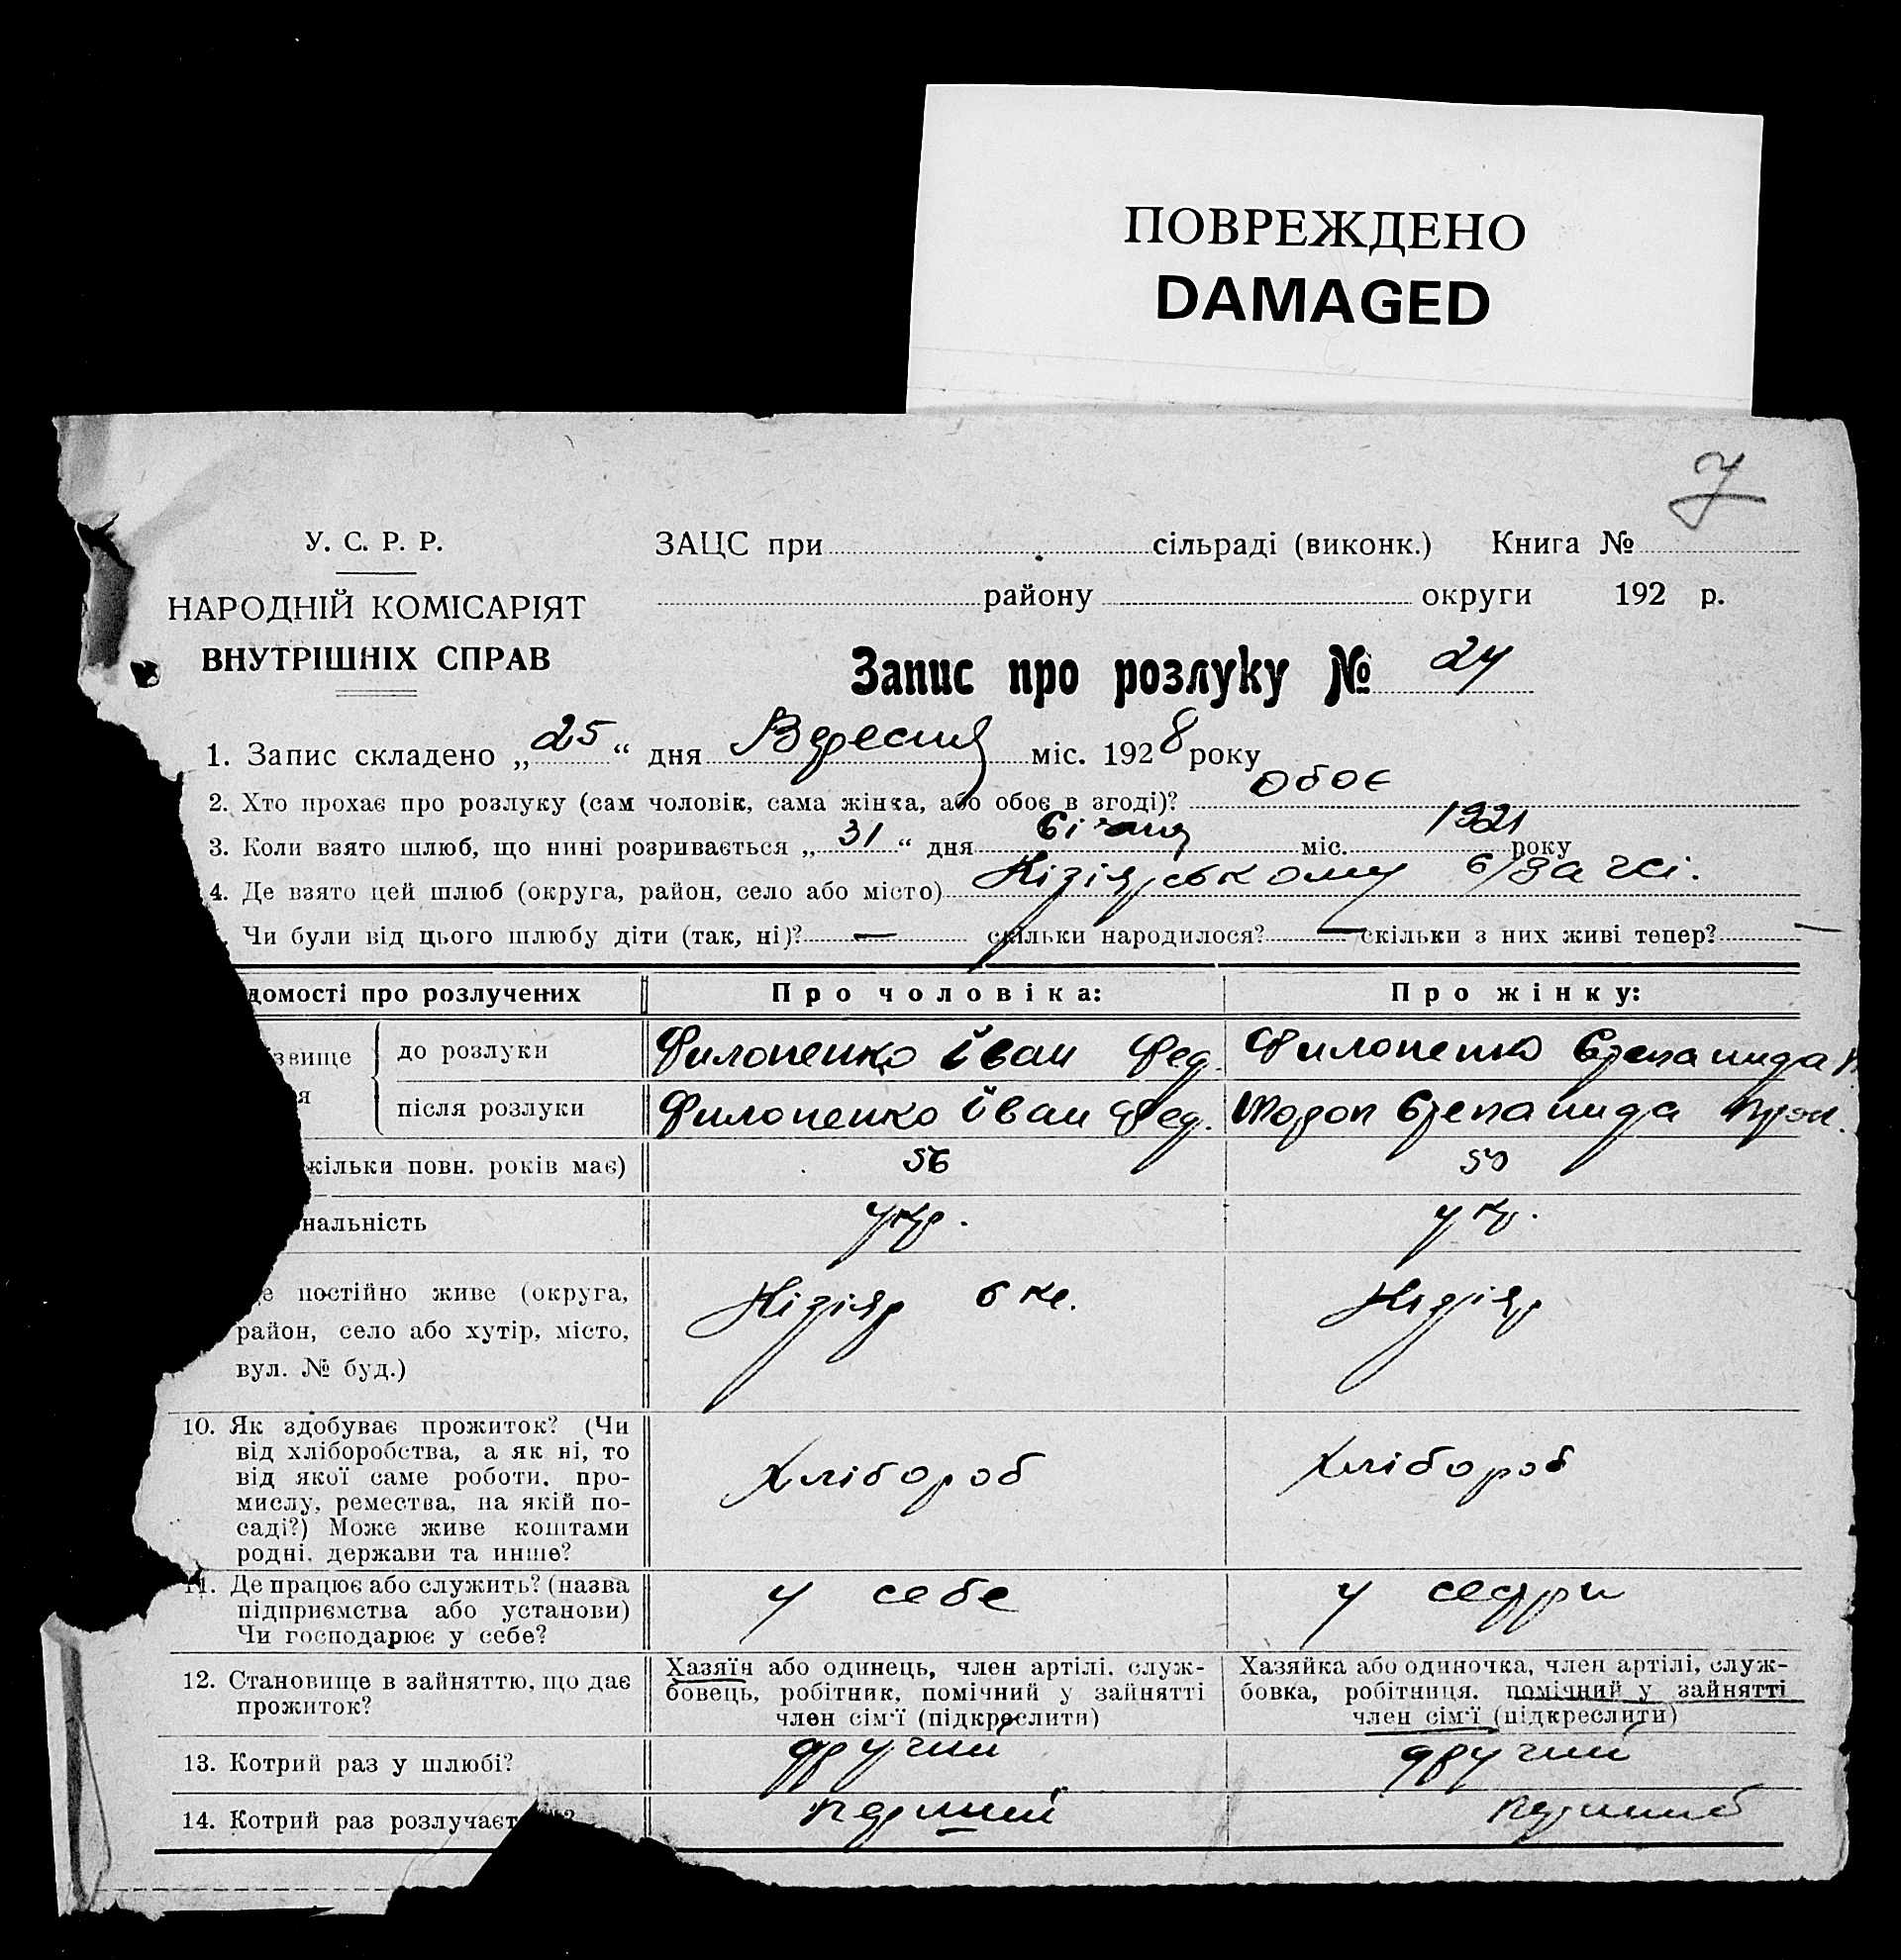 ПОВРЕЖДЕНО
DAMAGED
7
У. С. Р. Р.
НАРОДНІЙ КОМІСАРІЯТ
ВНУТРІШНІХ СПРАВ
ЗАЦС при сільраді (виконк.) Книга №
району округи 192 р.
Запис про розлуку № 24
1. Запис складено „25“ дня Вересня міс. 1928 року
2. Хто прохає про розлуку (сам чоловік, сама жінка, або обоє в згоді)? Обоє
3. Коли взято шлюб, що нині розривається „31“ дня Січня міс. 1921 року
4. Де взято цей шлюб (округа, район, село або місто) Кізіярському с/загсі.
Чи були від цього шлюбу діти (так, ні)? — скільки народилося? — скільки з них живі тепер? —
домості про розлучених Про чоловіка: Про жінку:
звище
я
до розлуки Филоненко Іван Фед. Филоненко Степанида
після розлуки Филоненко Іван Фед. Степанида
кільки повн. років має) 56 50
нальність укр. укр.
е постійно живе (округа,
район, село або хутір, місто,
вул. № буд.)
Кізіяр Кізіяр
10. Як здобуває прожиток? (Чи
від хліборобства, а як ні, то
від якої саме роботи, про-
мислу, ремества, на якій по-
саді?) Може живе коштами
родні, держави та инше?
Хлібороб Хлібороб
11. Де працює або служить? (назва
підприємства або установи)
Чи господарює у себе?
у себе у сестри
12. Становище в зайняттю, що дає
прожиток?
Хазяїн або одинець, член артілі, служ-
бовець, робітник, помічний у зайнятті
член сім'ї (підкреслити)
Хазяйка або одиночка, член артілі, служ-
бовка, робітниця, помічний у зайнятті
член сім'ї (підкреслити)
13. Котрий раз у шлюбі? другий другий
14. Котрий раз розлучаєт перший перший